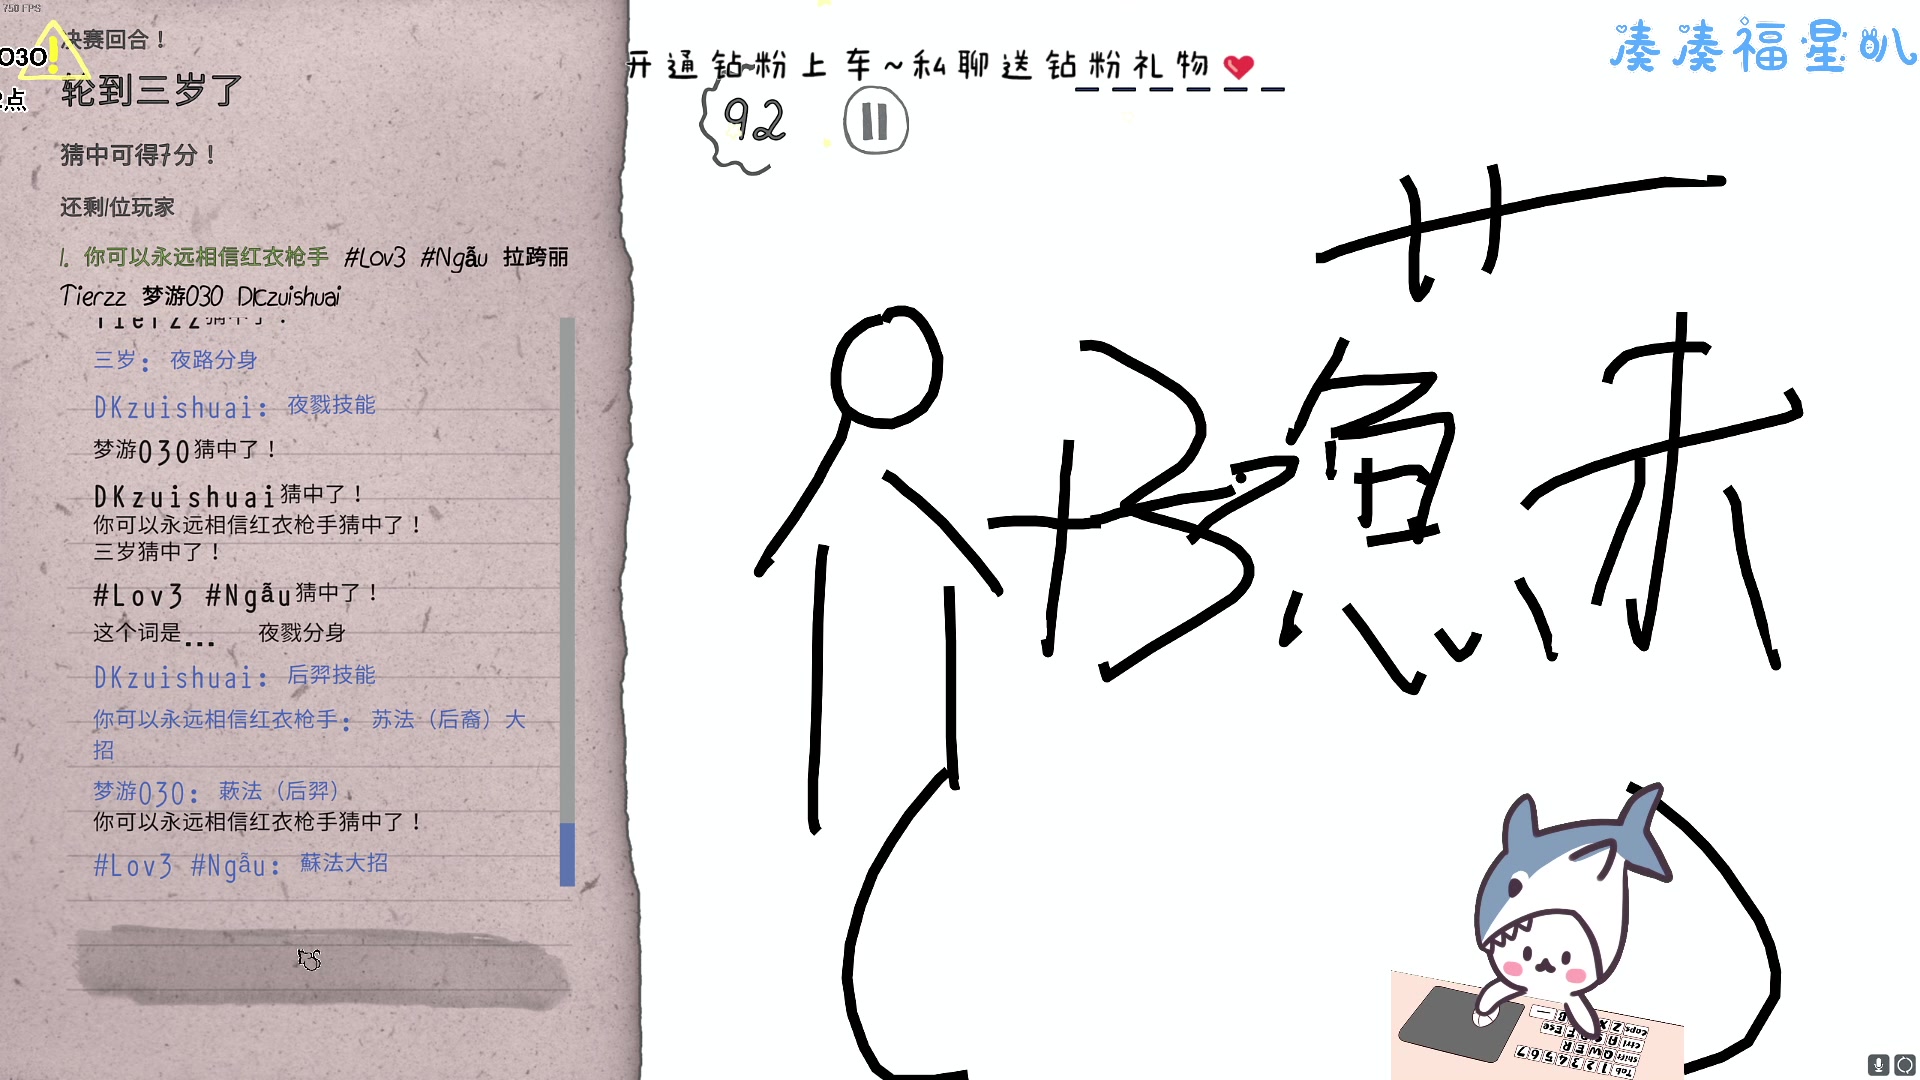 750 FPS
决赛回合！
030
轮到三岁了
点
猜中可得7分！
还剩1位玩家
1. 你可以永远相信红衣枪手 #Lov3 #Ngẫu 拉跨丽
Tierzz 梦游030 DKzuishuai
Tierzz猜中了！
三岁： 夜路分身
DKzuishuai： 夜戮技能
梦游030猜中了！
DKzuishuai猜中了！
你可以永远相信红衣枪手猜中了！
三岁猜中了！
#Lov3 #Ngẫu猜中了！
这个词是... 夜戮分身
DKzuishuai： 后羿技能
你可以永远相信红衣枪手： 苏法（后裔）大
招
梦游030： 蔌法（后羿）
你可以永远相信红衣枪手猜中了！
#Lov3 #Ngẫu： 蘇法大招
开通钻粉上车~私聊送钻粉礼物
92
凑凑福星叭